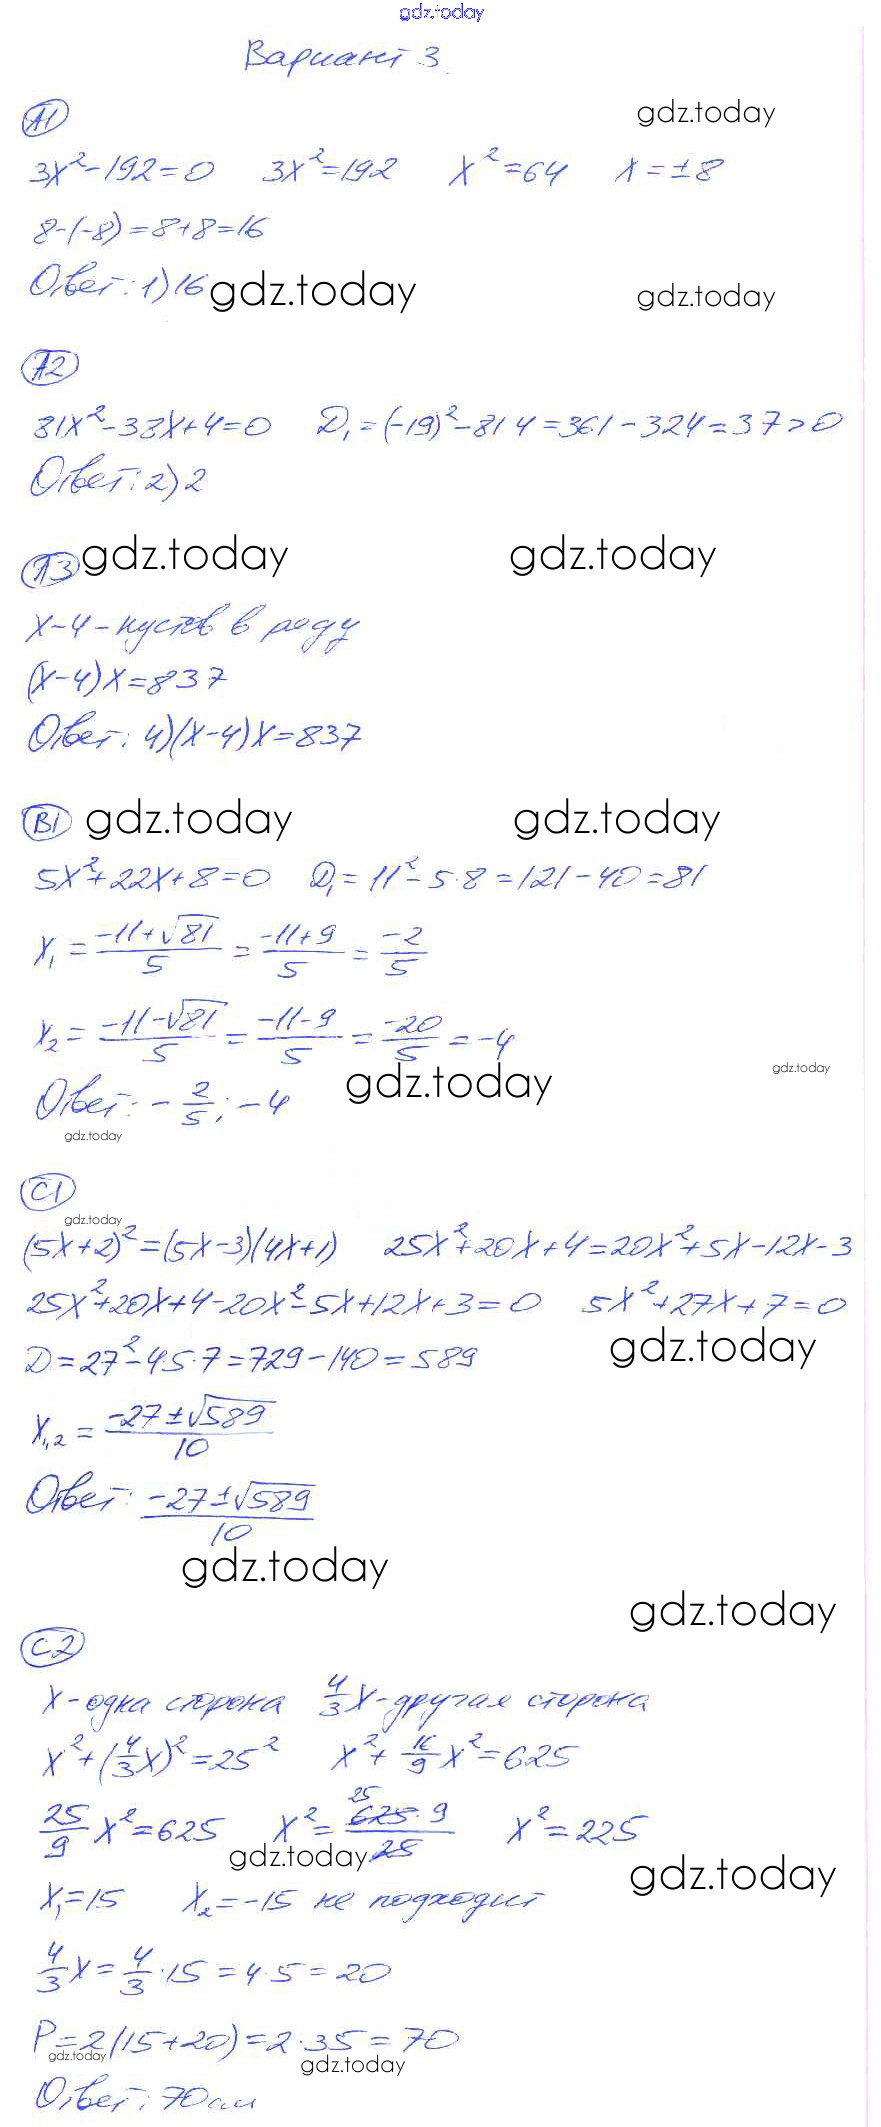 gdz.today
Вариант 3
А1 gdz.today
3x²-192=0 3x²=192 x²=64 x=±8
8-(-8)=8+8=16
Ответ: 1) 16 gdz.today gdz.today
А2
81x²-38x+4=0 D₁=(-19)²-81·4=361-324=37>0
Ответ: 2) 2
А3 gdz.today gdz.today
x-4-кустов в ряду
(x-4)x=837
Ответ: 4) (x-4)x=837
В1 gdz.today gdz.today
5x²+22x+8=0 D₁=11²-5·8=121-40=81
x₁=(-11+√81)/5=(-11+9)/5=-2/5
x₂=(-11-√81)/5=(-11-9)/5=-20/5=-4
Ответ: -2/5; -4 gdz.today gdz.today
gdz.today
С1
gdz.today
(5x+2)²=(5x-3)(4x+1) 25x²+20x+4=20x²+5x-12x-3
25x²+20x+4-20x²-5x+12x+3=0 5x²+27x+7=0
D=27²-4·5·7=729-140=589 gdz.today
x₁,₂=(-27±√589)/10
Ответ: (-27±√589)/10
gdz.today
gdz.today
С2
x-одна сторона 4/3x-другая сторона
x²+(4/3x)²=25² x²+16/9x²=625
25/9x²=625 x²=625·9/25 25 x²=225
gdz.today gdz.today
x₁=15 x₂=-15 не подходит
4/3x=4/3·15=4·5=20
P=2(15+20)=2·35=70
gdz.today gdz.today
Ответ: 70см